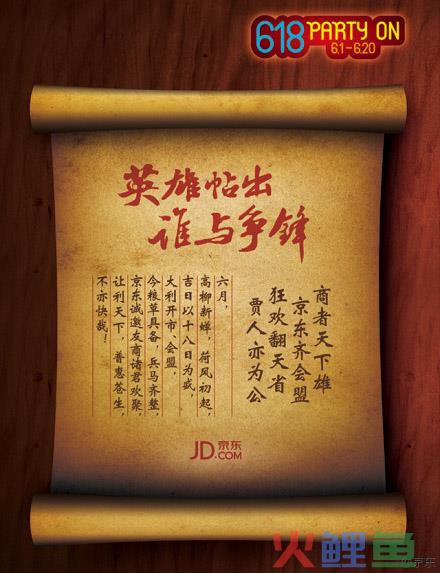 618 PARTY ON
6.1-6.20
英雄帖出
谁与争锋
商者天下雄
京东齐会盟
狂欢翻天省
贾人亦为公
六月，
高柳新蝉，荷风初起，
吉日以十八日为盛，
大利开市，会盟，
今粮草具备，兵马齐整，
京东诚邀友商诸君欢聚，
让利天下，普惠苍生，
不亦快哉！
JD京东
.COM
火鲤鱼
@京东